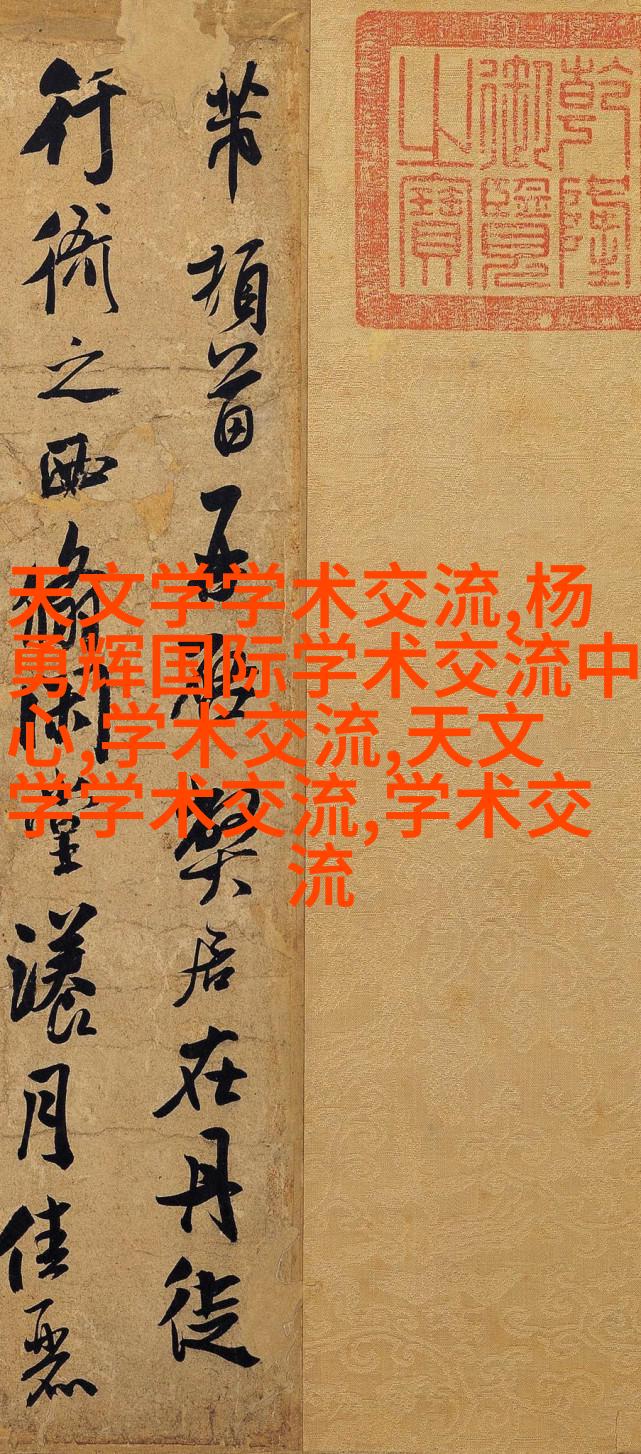 乾隆
御覽
之寶
芾頓首再啓獘居在丹徒
行衙之西翛閑堂瀁月佳麗
天文学学术交流,杨
勇辉国际学术交流中
心,学术交流,天文
学学术交流,学术交
流